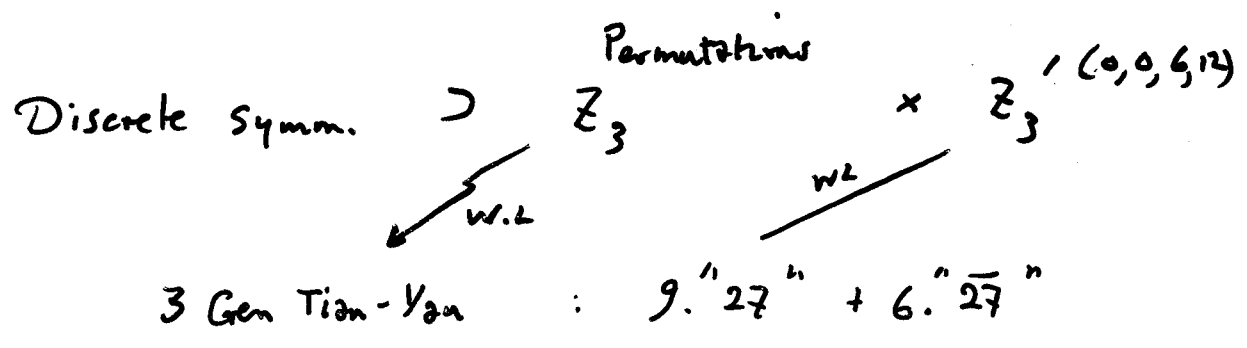 Permutations
Discrete symm. ⊃ Z₃ × Z₃′ (0,0,6,12)
W.L WL
3 Gen Tian-Yau : 9."27" + 6."2̅7̅"